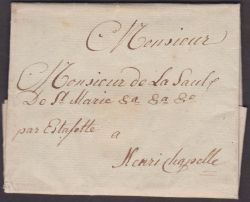 Monsieur
Monsieur de La Saulx
De St Marie &a &a &c
par Estafette
a
Henri Chapelle